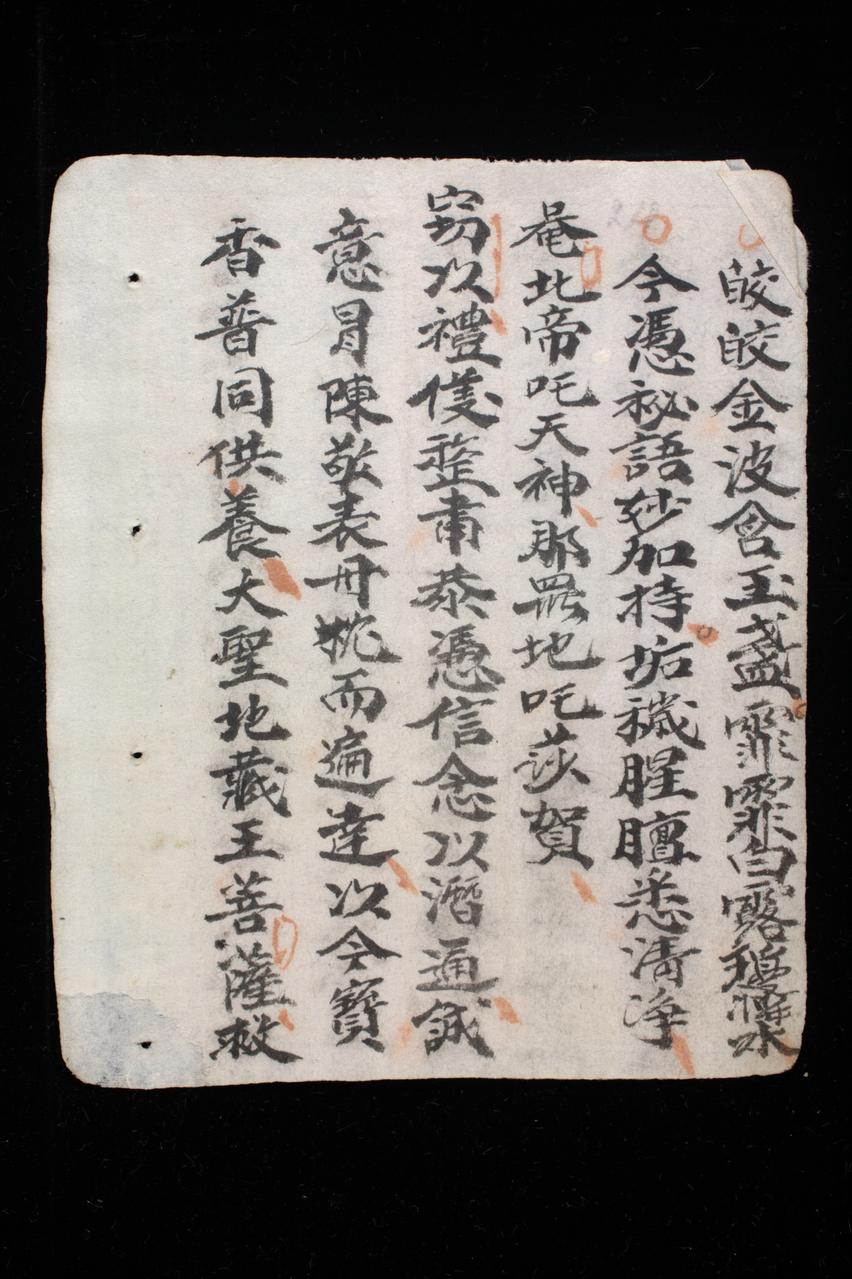 皎皎金波含玉盞霏霏白露
今憑祕語妙加持垢穢腥膻悉清淨
唵北帝吒天神那羅地吒莎賀
竊以禮儀整肅恭憑信念以潛通誠
意冒陳敬表丹忱而遍達以今寶
香普同供養大聖地藏王菩薩救